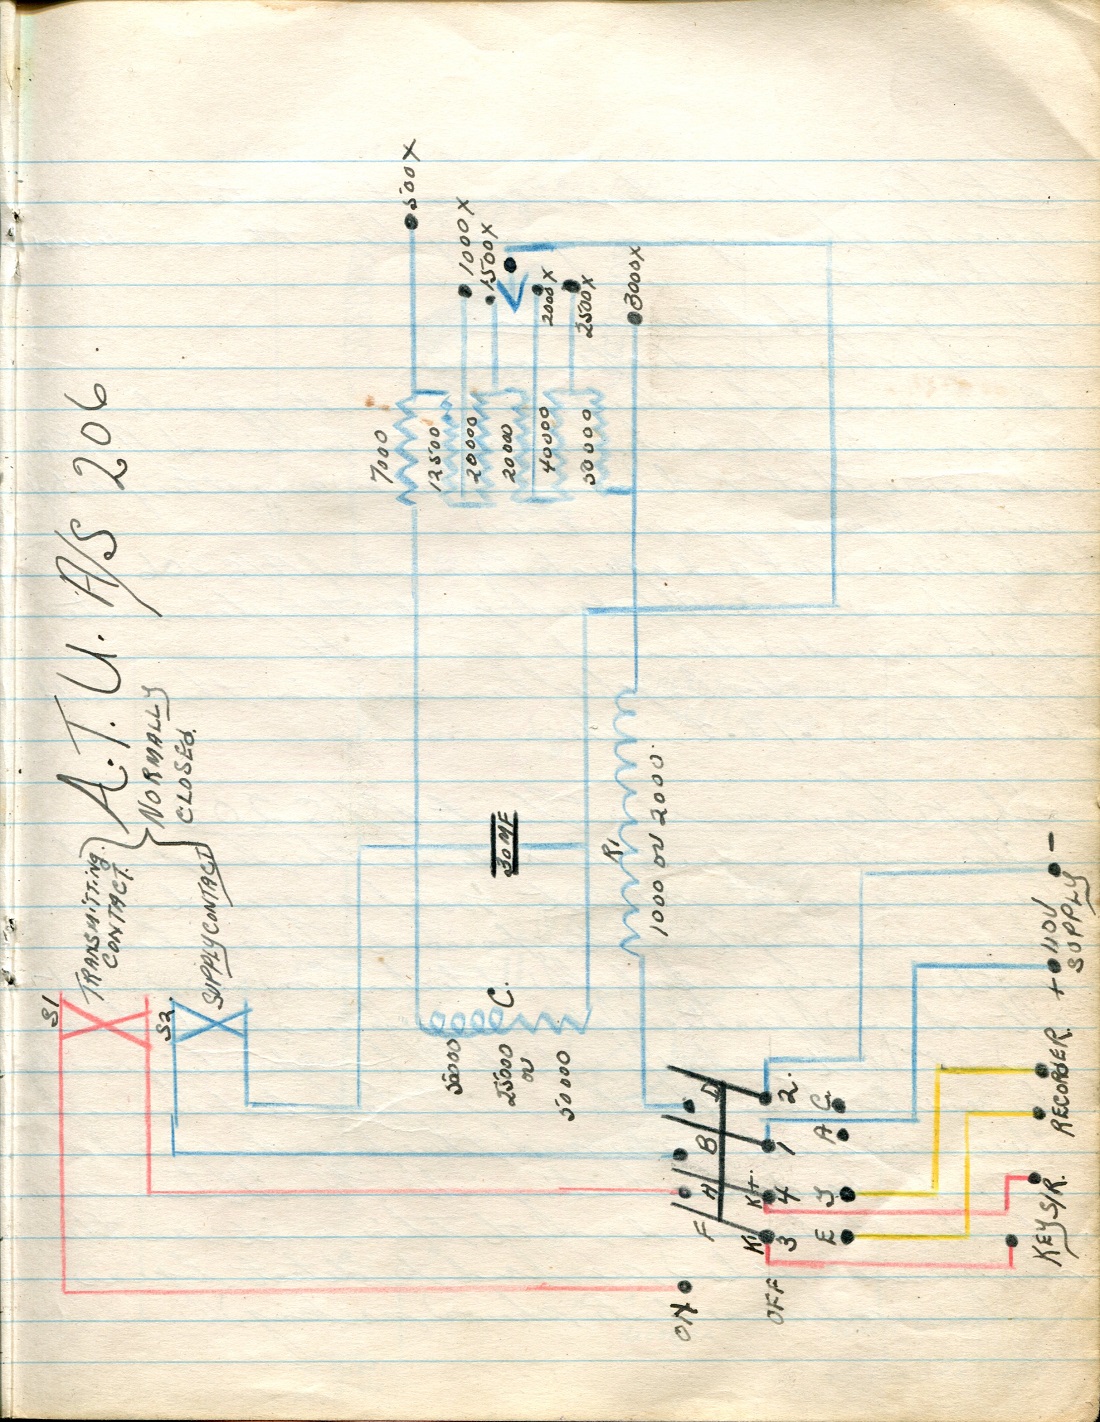 A.T.U. A/S 206.
TRANSMITTING
CONTACT.
NORMALLY
CLOSED.
SUPPLY CONTACT
S1
S2
500X
1000X
1500X
2000X
2500X
3000X
7000
12500
20000
20000
40000
50000
30MF
R1
1000 OU 2000.
C.
50000
25000
OU
50000
ON
F
H
B
D
K1
K4.
OFF
3
4
1
2.
E
J
A
C
KEY S/R.
RECORDER.
+ 110V -
SUPPLY